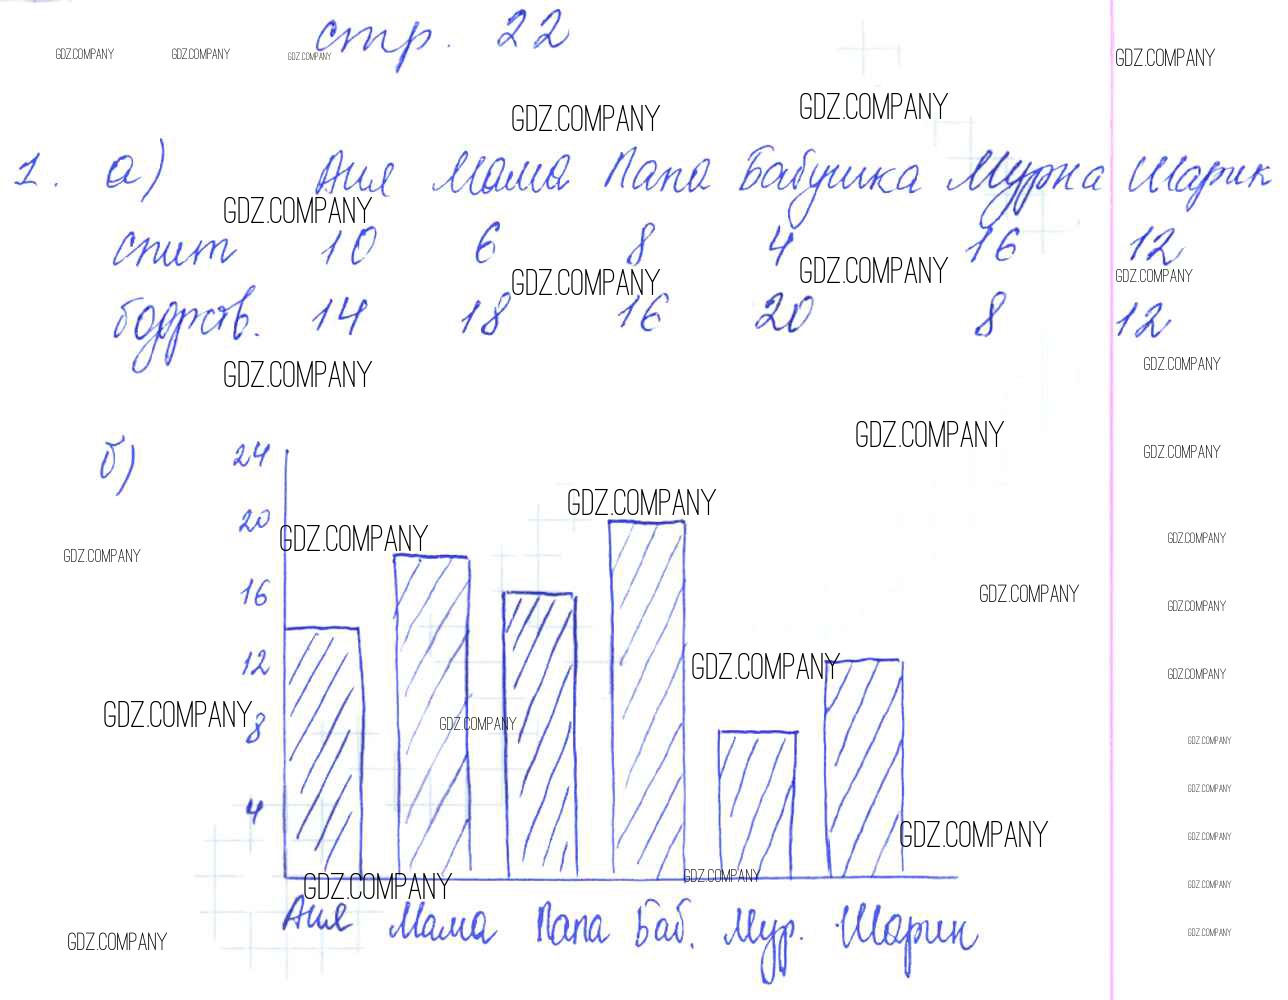 стр. 22
GDZ.COMPANY GDZ.COMPANY GDZ.COMPANY GDZ.COMPANY
GDZ.COMPANY GDZ.COMPANY
1. а) Аня Мама Папа Бабушка Мурка Шарик
GDZ.COMPANY
спит 10 6 8 4 16 12
GDZ.COMPANY GDZ.COMPANY GDZ.COMPANY
бодрств. 14 18 16 20 8 12
GDZ.COMPANY GDZ.COMPANY
GDZ.COMPANY
б) 24 GDZ.COMPANY
GDZ.COMPANY
20
GDZ.COMPANY GDZ.COMPANY
GDZ.COMPANY
16 GDZ.COMPANY GDZ.COMPANY
12 GDZ.COMPANY GDZ.COMPANY
GDZ.COMPANY
8 GDZ.COMPANY GDZ.COMPANY
GDZ.COMPANY
4
GDZ.COMPANY GDZ.COMPANY
GDZ.COMPANY GDZ.COMPANY GDZ.COMPANY
Аня Мама Папа Баб. Мур. Шарик
GDZ.COMPANY GDZ.COMPANY